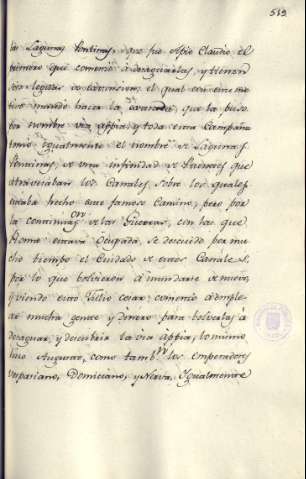 519
las Lagunas Pontinas, que fue Apio Claudio el
primero que comenzó á desaguarlas, y tienen
por el qual con este mo-
tivo mando hacia la que la puso
por nombre via appia, y toda esta Campaña
tomó igualmente el nombre de Lagunas
Pontinas, de una infinidad de Puentes que
atravesaban los Canales, sobre los quales
estaba hecho este famoso Camino, pero por
la continuas.on de las Guerras, con las que
Rome estava ocupada, se descuido por mu-
cho tiempo el Cuidado de estos Canales,
por lo que bolvieron á inundarse de nuevo,
y viendo esto Julio Cesar, comenzó á emple-
ar mucha gente y dinero para bolverlas á
desaguar, y descubrir la via Appia, lo mismo
hizo Augusto, como tamb.n los emperadores
Vespasiano, Domiciano, y Nerva, Igualmente